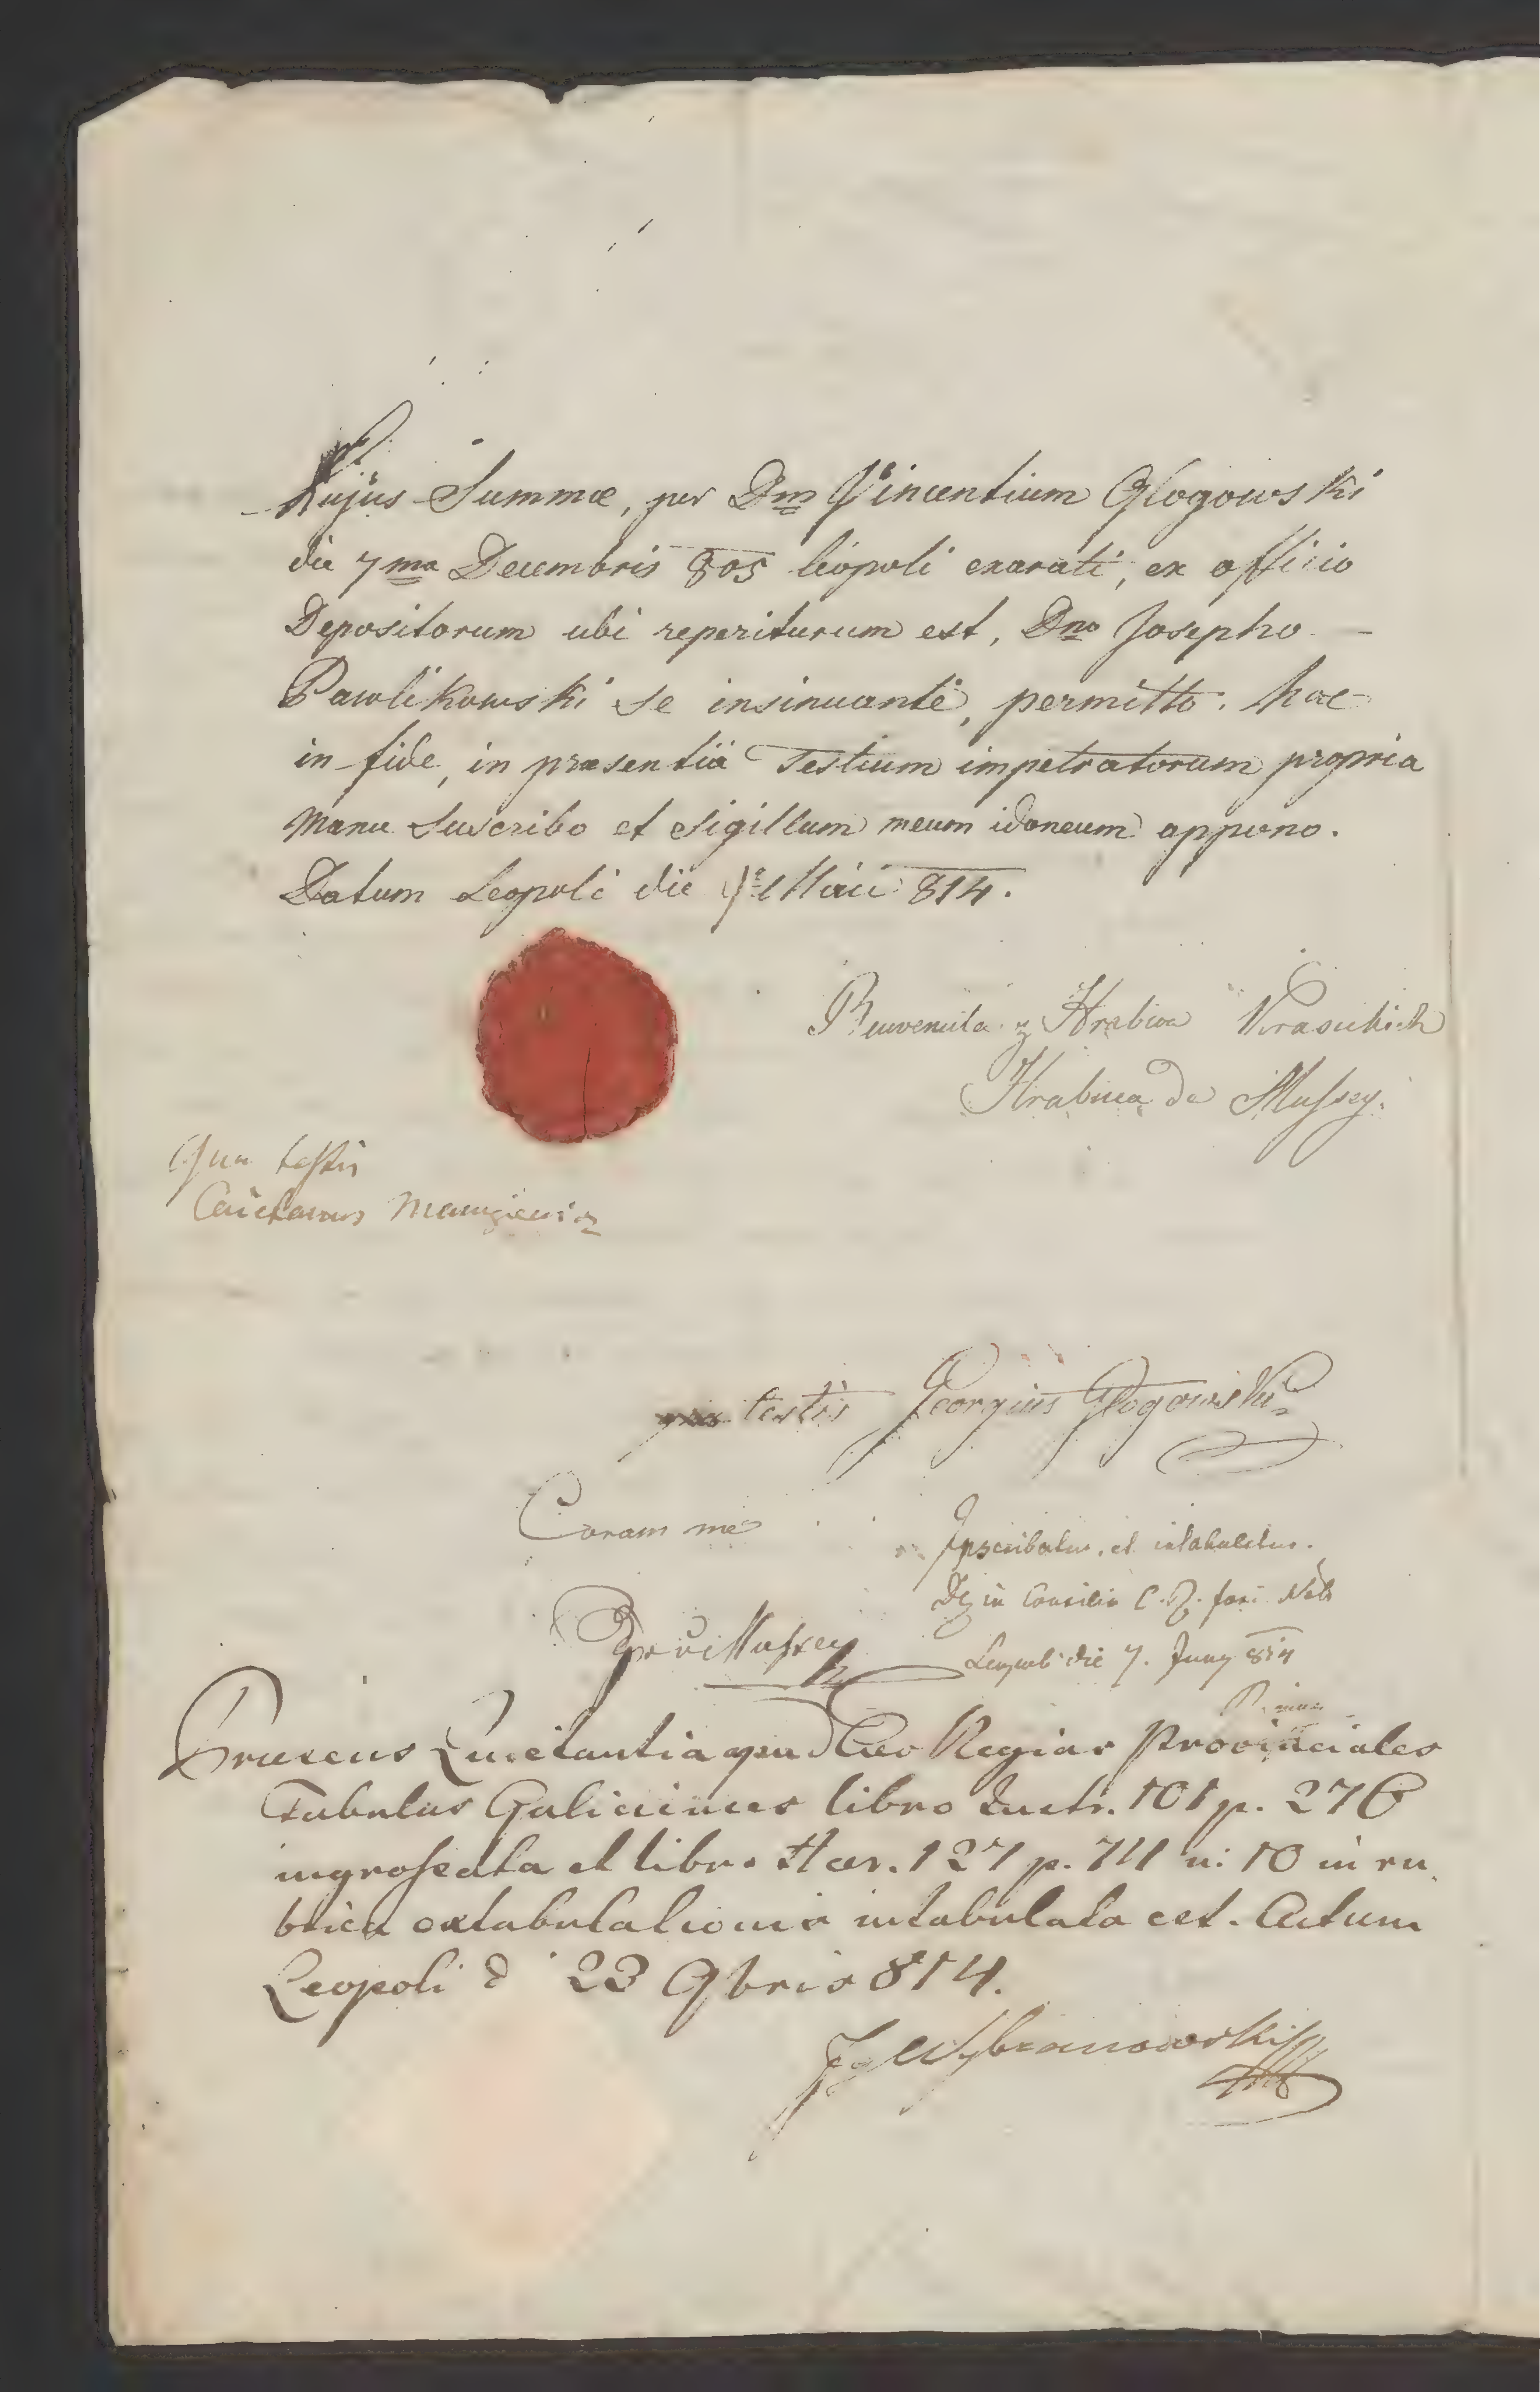 hujus Summæ, per Dm Vincentium Głogowski
die 7ma Decembris 805 Leopoli exarati, ex officio
Depositorum ubi reperiturum est, Dno Josepho —
Pawlikowski se insinuante, permitto. hac
in fide, in præsentiä Testium impetratorum propria
manu Suscribo et Sigillum meum idoneum appono.
Datum Leopoli die Maii 814.
z Hrabiow Krasickich
Hrabina de Mussey.
Qua testis
Caietanus
qua testis Georgius Głogowski
Coram me
Inscribatur, et intabuletur.
in Consilio C. R. fori Nob
Leopoli die 7. Juny 814
de Mussey
Præsens Quietantia apud Cæs Regias Provinciales
Tabulas Galicienses libro Instr. 101 p. 276
ingrossata et libro Hær. 127 p. 74 n: 10 in ru
brica extabulationis intabulata est. Actum
Leopoli d 23 9bris 814.